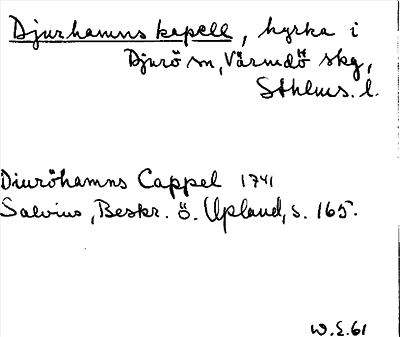 Djurhamns kapell, kyrka i
Djurö sn, Värmdö skg,
Sthlms. l.
Diuröhamns Cappel 1741
Salvius, Beskr. ö. Upland, s. 165.
W.E. 61